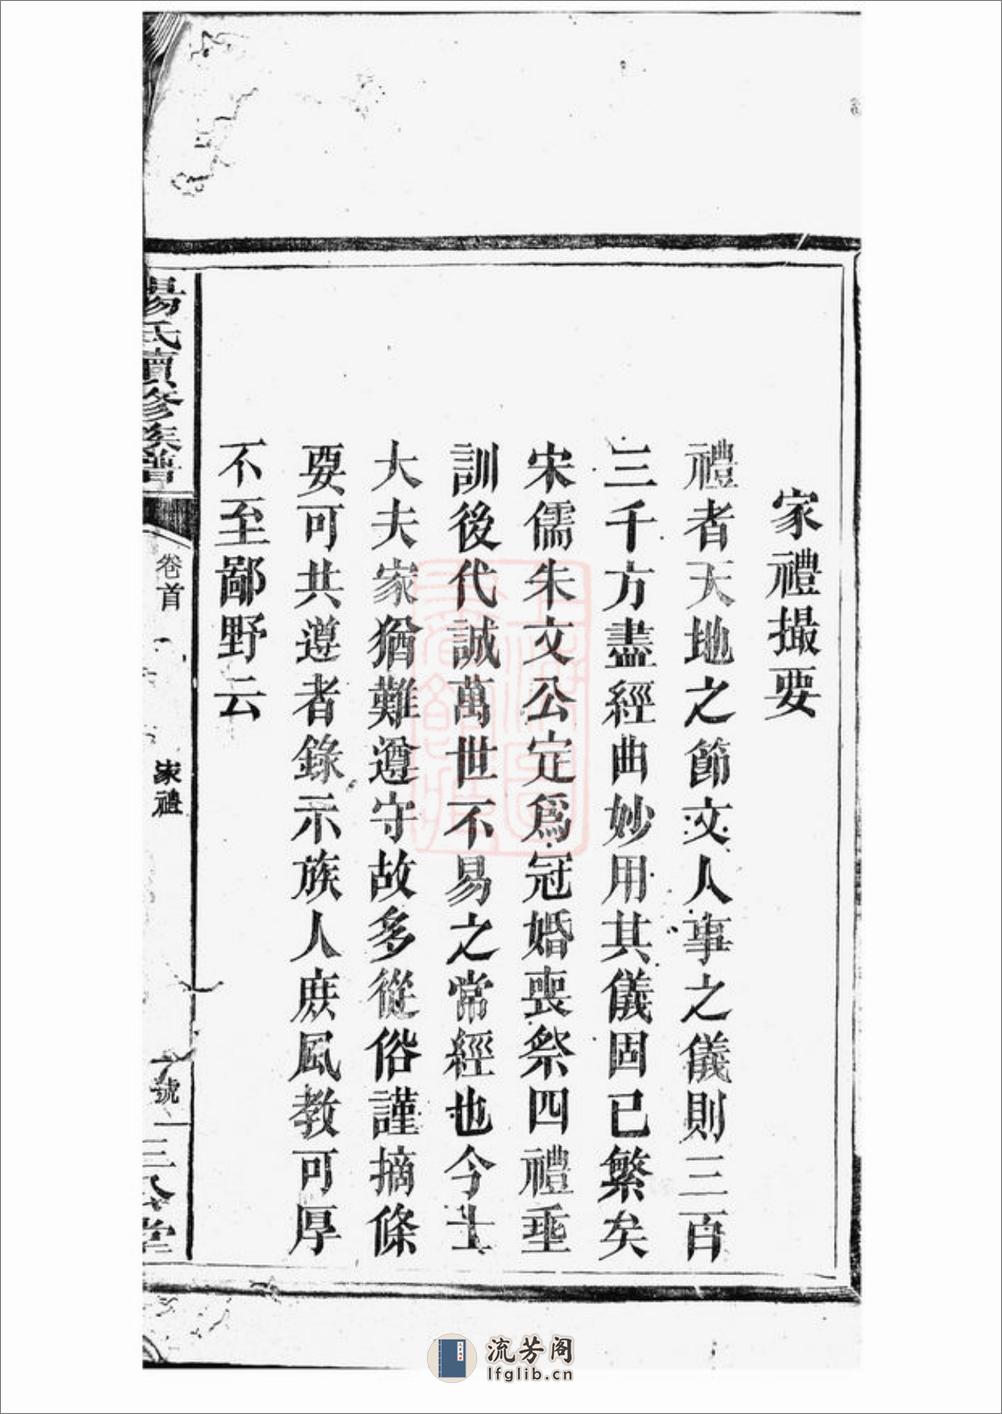 家禮撮要
禮者天地之節文人事之儀則三百
三千方盡經曲妙用其儀固已繁矣
宋儒朱文公定爲冠婚喪祭四禮垂
訓後代誠萬世不易之常經也今士
大夫家猶難遵守故多從俗謹摘條
要可共遵者錄示族人庶風教可厚
不至鄙野云
楊氏續修族譜
卷首
家禮
號
三公堂
流芳阁
lfglib.cn